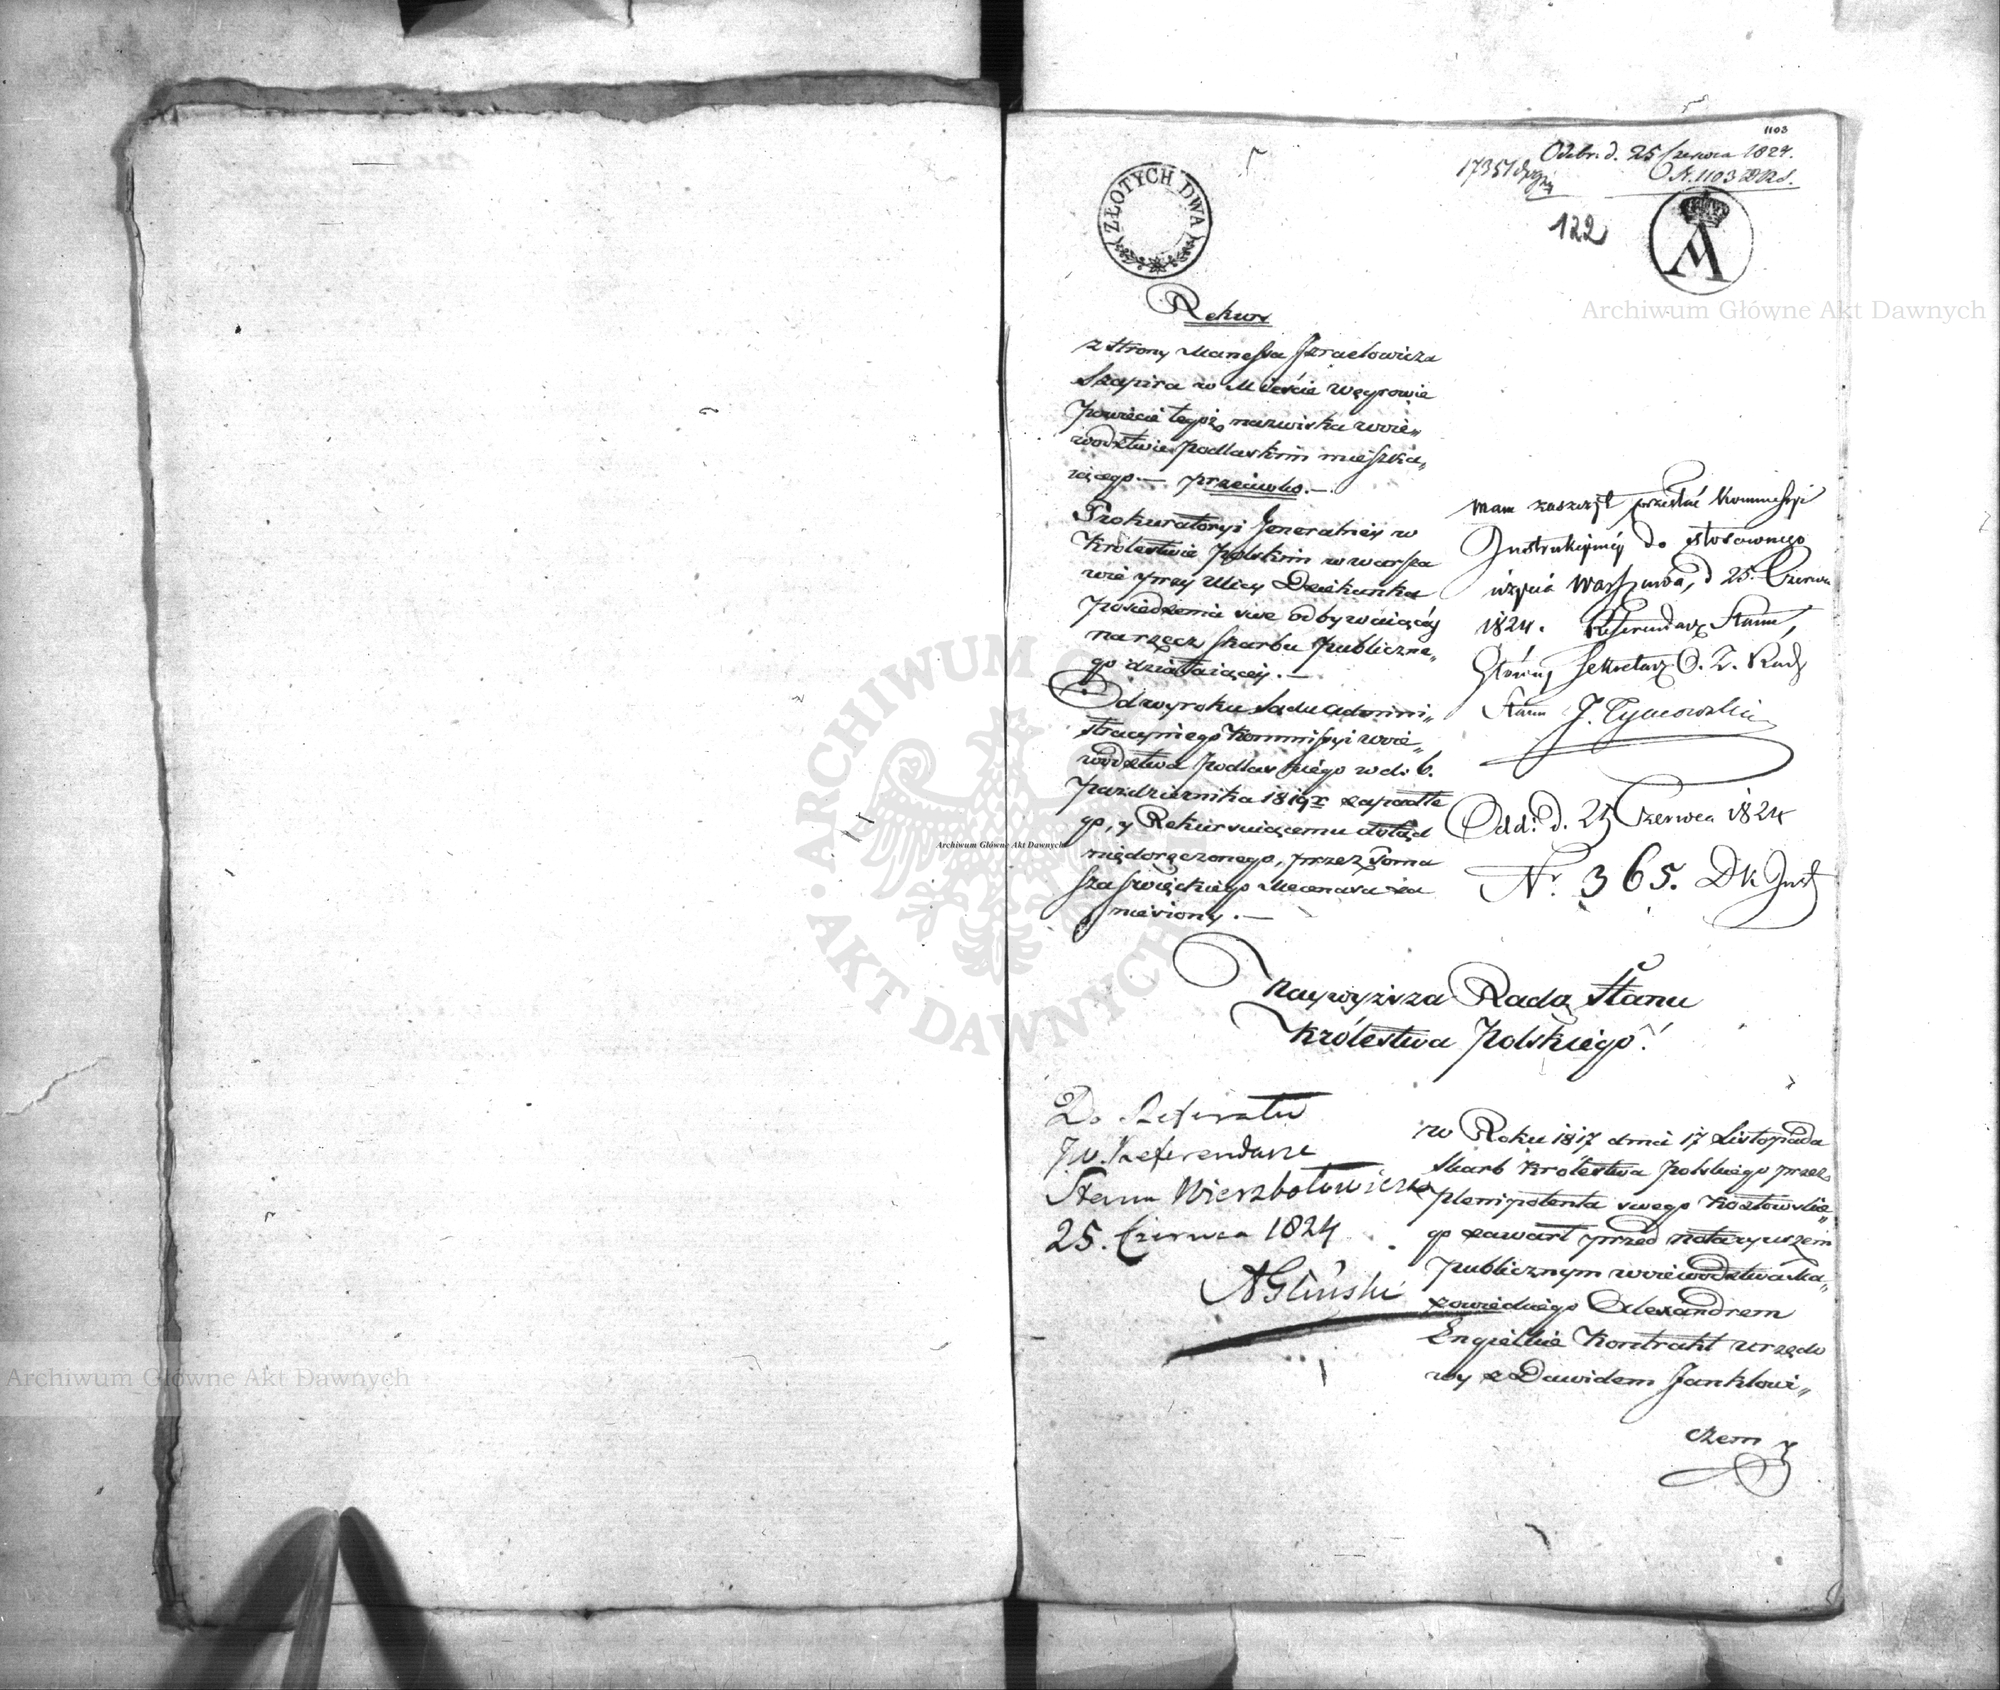 1103
Odebr. d. 25 Czerwca 1824.
N. 1103
1735
122
ZŁOTYCH DWA
A
Rekurs
z strony Manessa Izraelowicza
Szapira w Mieście Węgrowie
Powiecie tegoż nazwiska woie„
wodztwie Podlaskim mieszka„
iącego. — przeciwko. —
Prokuratoryi Jeneralnéy w
Królestwie Polskim w Warsza
wie przy Ulicy Dziekanka
Posiedzenia swe odbywaiącéy
na rzecz Skarbu Publiczne„
go działaiącey. —
Od wyroku Sadu Admini„
stracyinego Kommissyi woie„
wodztwa Podlaskiego w d: 6.
Pazdziernika 1819 r zapadłe
go, y Rekursuiącemu dotąd
niedoręczonego, przez Toma
sza Święckiego Mecenasa za
niesiony. —
Mam zaszczyt przesłać Kommissyi
Instrukcyiney do stosownego
użycia Warszawa, d 25. Czerwca
1824. Referendarz Stanu,
Główny Sekretarz O. Z. Rady
Stanu J. Tymowski
Odd: d. 25 Czerwca 1824
Nr. 365. Dk Inst
Naywyższa Rado Stanu
Królestwa Polskiego!
Do Referatu
JW. Referendarza
Stanu Wierzbołowicza
25. Czerwca 1824
A Gliński
w Roku 1817 dnia 17 Listopada
Skarb Królestwa Polskiego przez
plenipotenta swego Kozłowskie„
go zawarł przed notaryuszem
Publicznym woiewodztwa Ma„
zowieckiego Alexandrem
Engielkie Kontrakt urzędo
wy z Dawidem Janklowi„
czem
Archiwum Główne Akt Dawnych
Archiwum Główne Akt Dawnych
Archiwum Główne Akt Dawnych
ARCHIWUM
AKT DAWNYCH